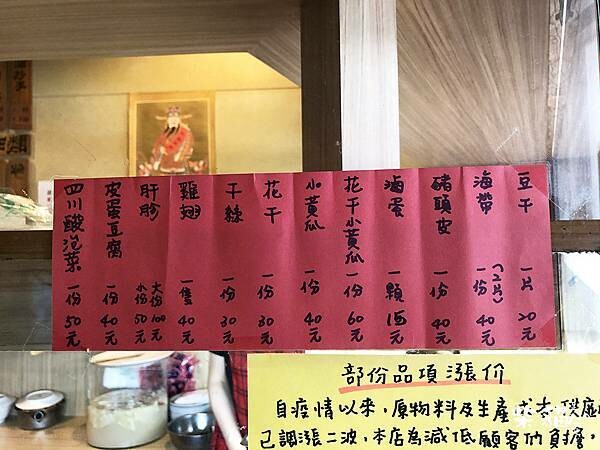 豆干 一片 20元
海帶 (2片) 一份 40元
豬頭皮 一份 40元
滷蛋 一顆 15元
花干小黃瓜 一份 60元
小黃瓜 一份 40元
花干 一份 30元
干絲 一份 30元
雞翅 一隻 40元
肝胗 大份 100元 小份 50元
皮蛋豆腐 一份 40元
四川酸泡菜 一份 50元
部份品項漲價
自疫情以來，原物料及生產成本
已調漲二波，本店為減低顧客們負擔，